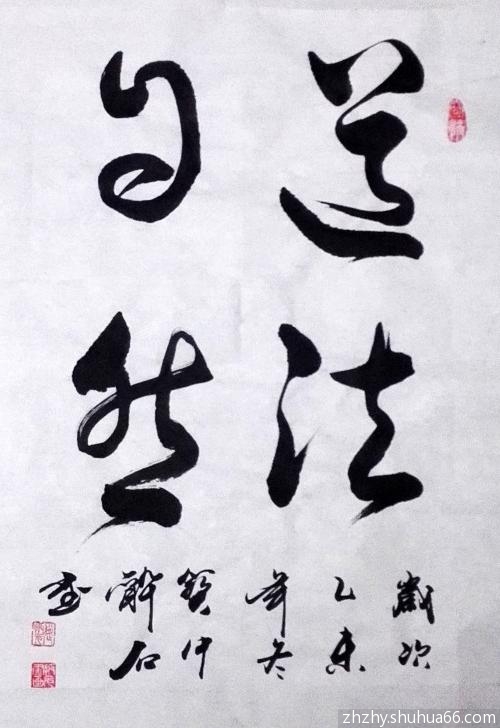 道法
自然
歲次
乙未
年冬
zhzhyshuhua66.com